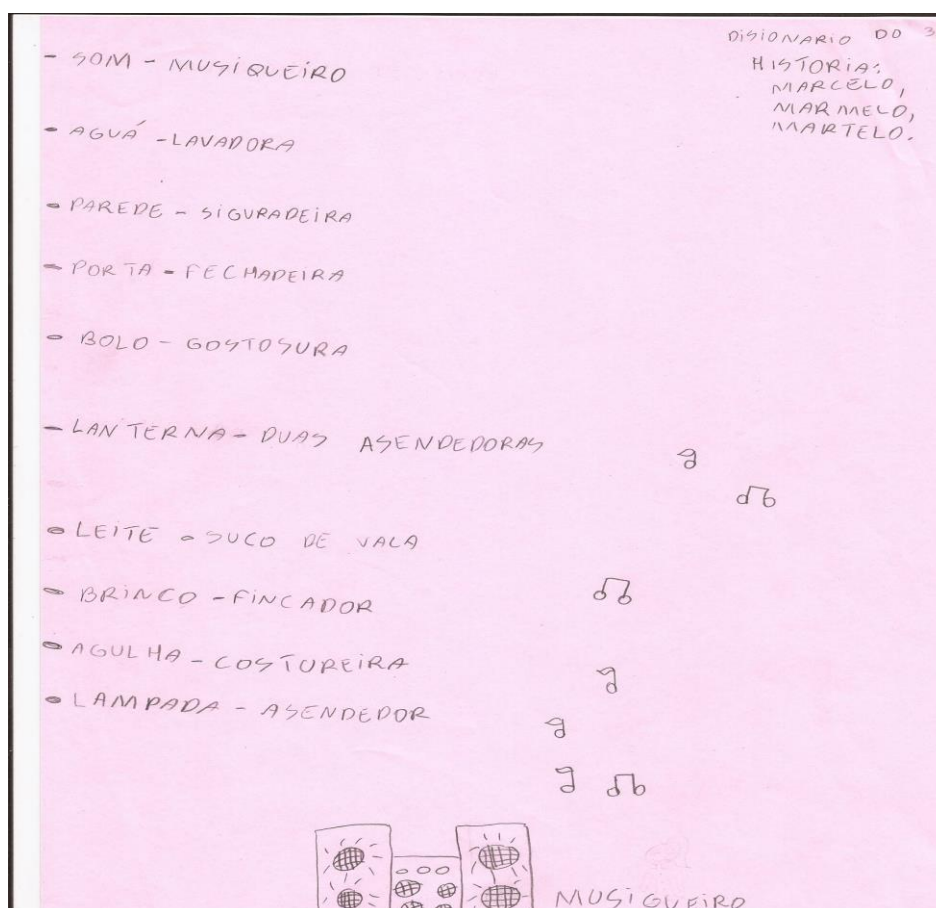 DISIONARIO DO 3
HISTORIA:
MARCELO,
MARMELO,
MARTELO.
- SOM - MUSIQUEIRO
- AGUÁ - LAVADORA
- PAREDE - SIGURADEIRA
- PORTA - FECHADEIRA
- BOLO - GOSTOSURA
- LANTERNA - DUAS ASENDEDORAS
- LEITE - SUCO DE VACA
- BRINCO - FINCADOR
- AGULHA - COSTUREIRA
- LAMPADA - ASENDEDOR
MUSIQUEIRO